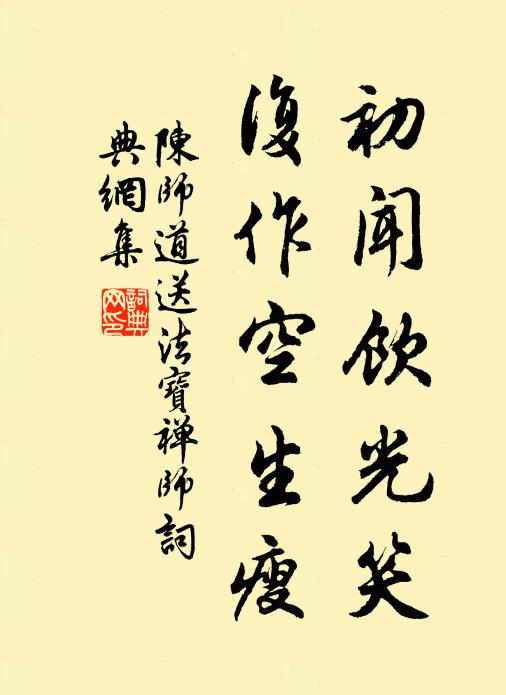 初聞飲光笑
復作空生瘦
陳師道送法寶禅師詞
典網集
詞典网印